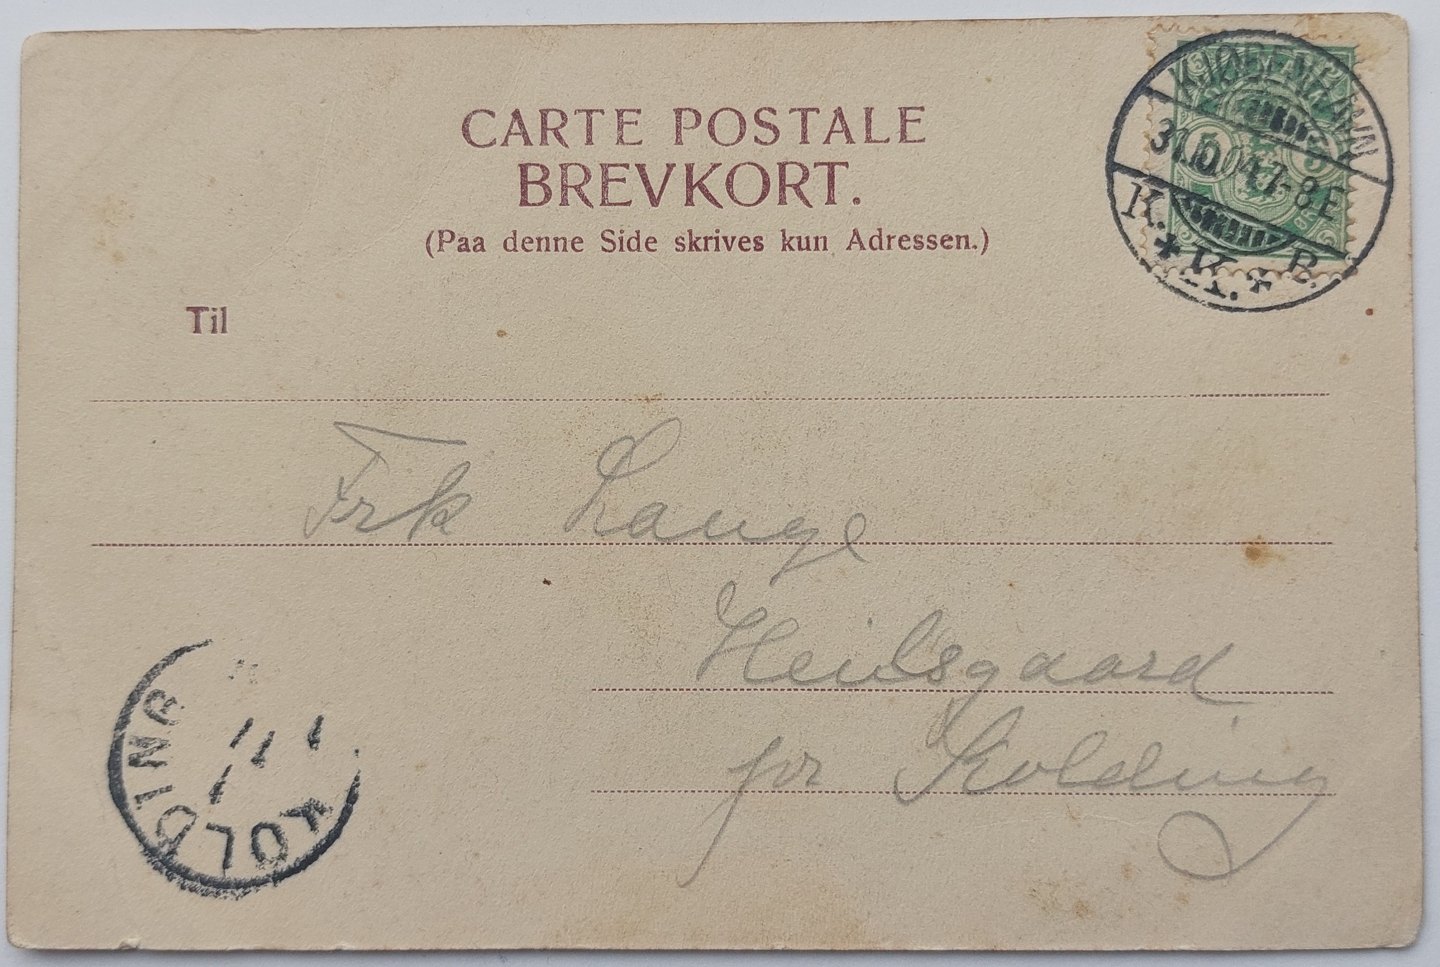 CARTE POSTALE
BREVKORT.
(Paa denne Side skrives kun Adressen.)
KJØBENHAVN
31.10.04.7-8E
K. K. B.
5
Til
Frk Lange
Heilsgaard
pr Kolding
KOLDING
1 11